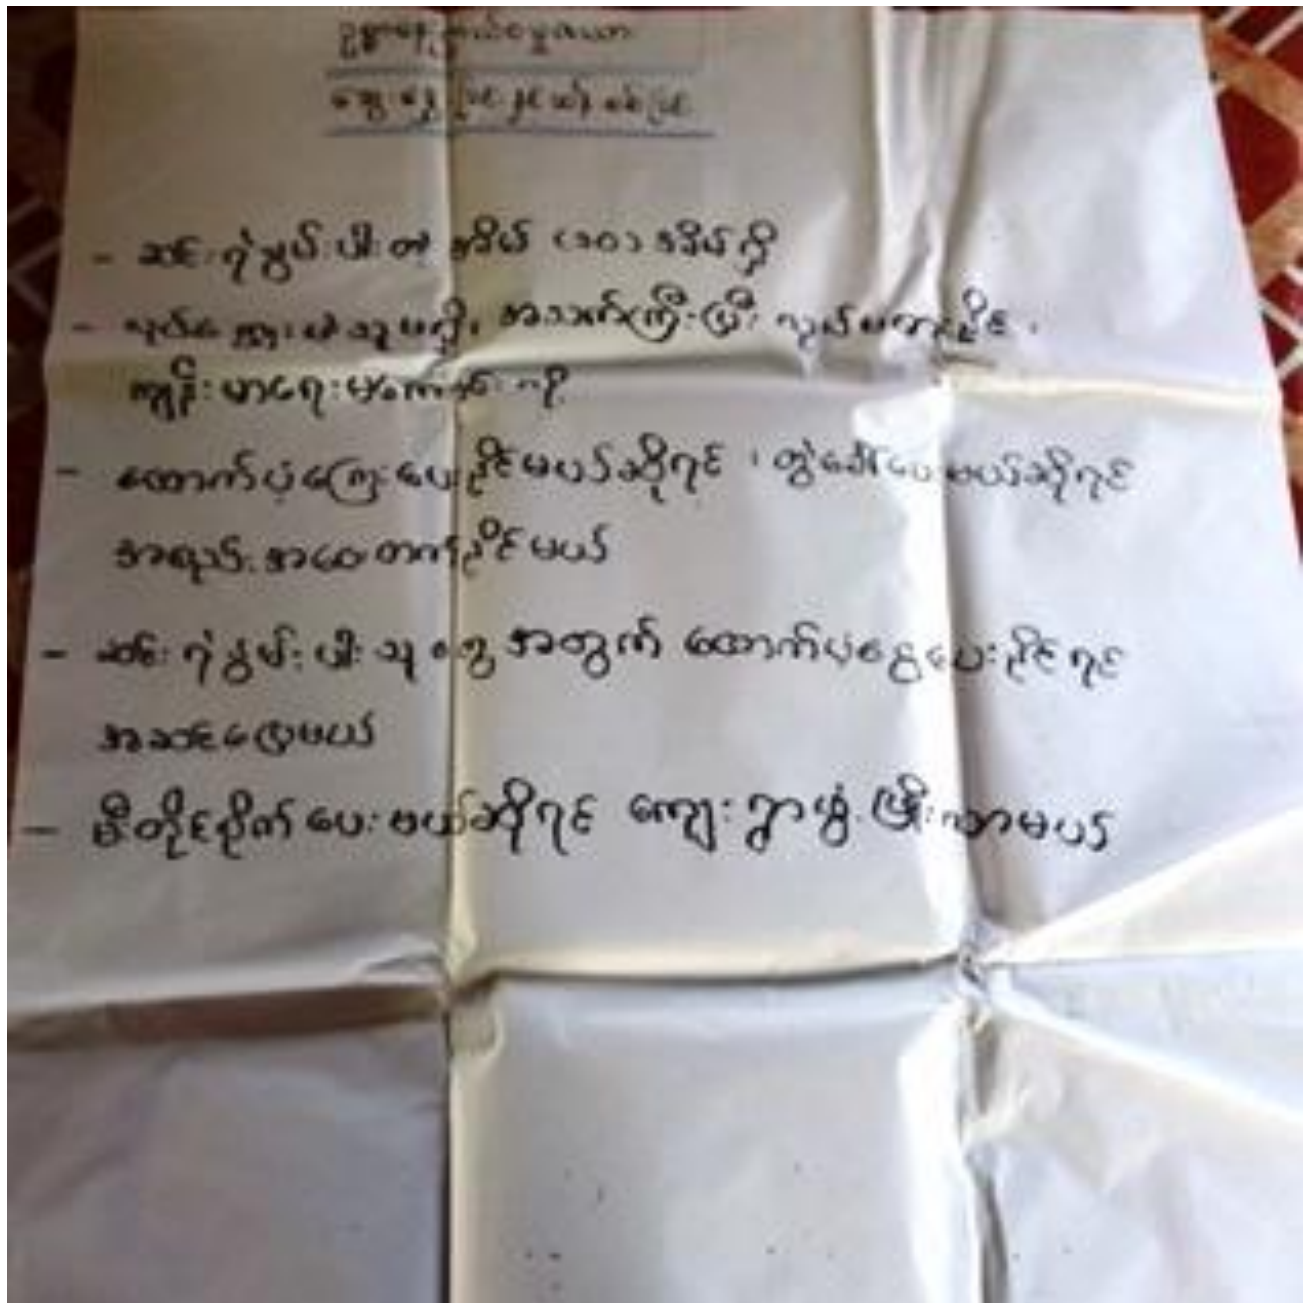 ဆွေးနွေးခြင်းနှင့်ဆန်းစစ်ခြင်း
- ဆင်းရဲနွမ်းပါးတဲ့ အိမ် (၁၀) အိမ်ရှိ
- လုပ်ကျွေးမဲ့သူမရှိ၊ အသက်ကြီးပြီး လုပ်မစားနိုင်၊
ကျန်းမာရေးမကောင်း
- ထောက်ပံ့ကြေးပေးနိုင်မယ်ဆိုရင်၊ တွဲခေါ်ပေးမယ်ဆိုရင်
အရည်အသွေးတက်နိုင်မယ်
- ဆင်းရဲနွမ်းပါးသူတွေအတွက် ထောက်ပံ့ငွေပေးနိုင်ရင်
အဆင်ပြေမယ်
- မီးတိုင်စိုက်ပေးမယ်ဆိုရင် ကျေးရွာဖွံ့ဖြိုးလာမယ်